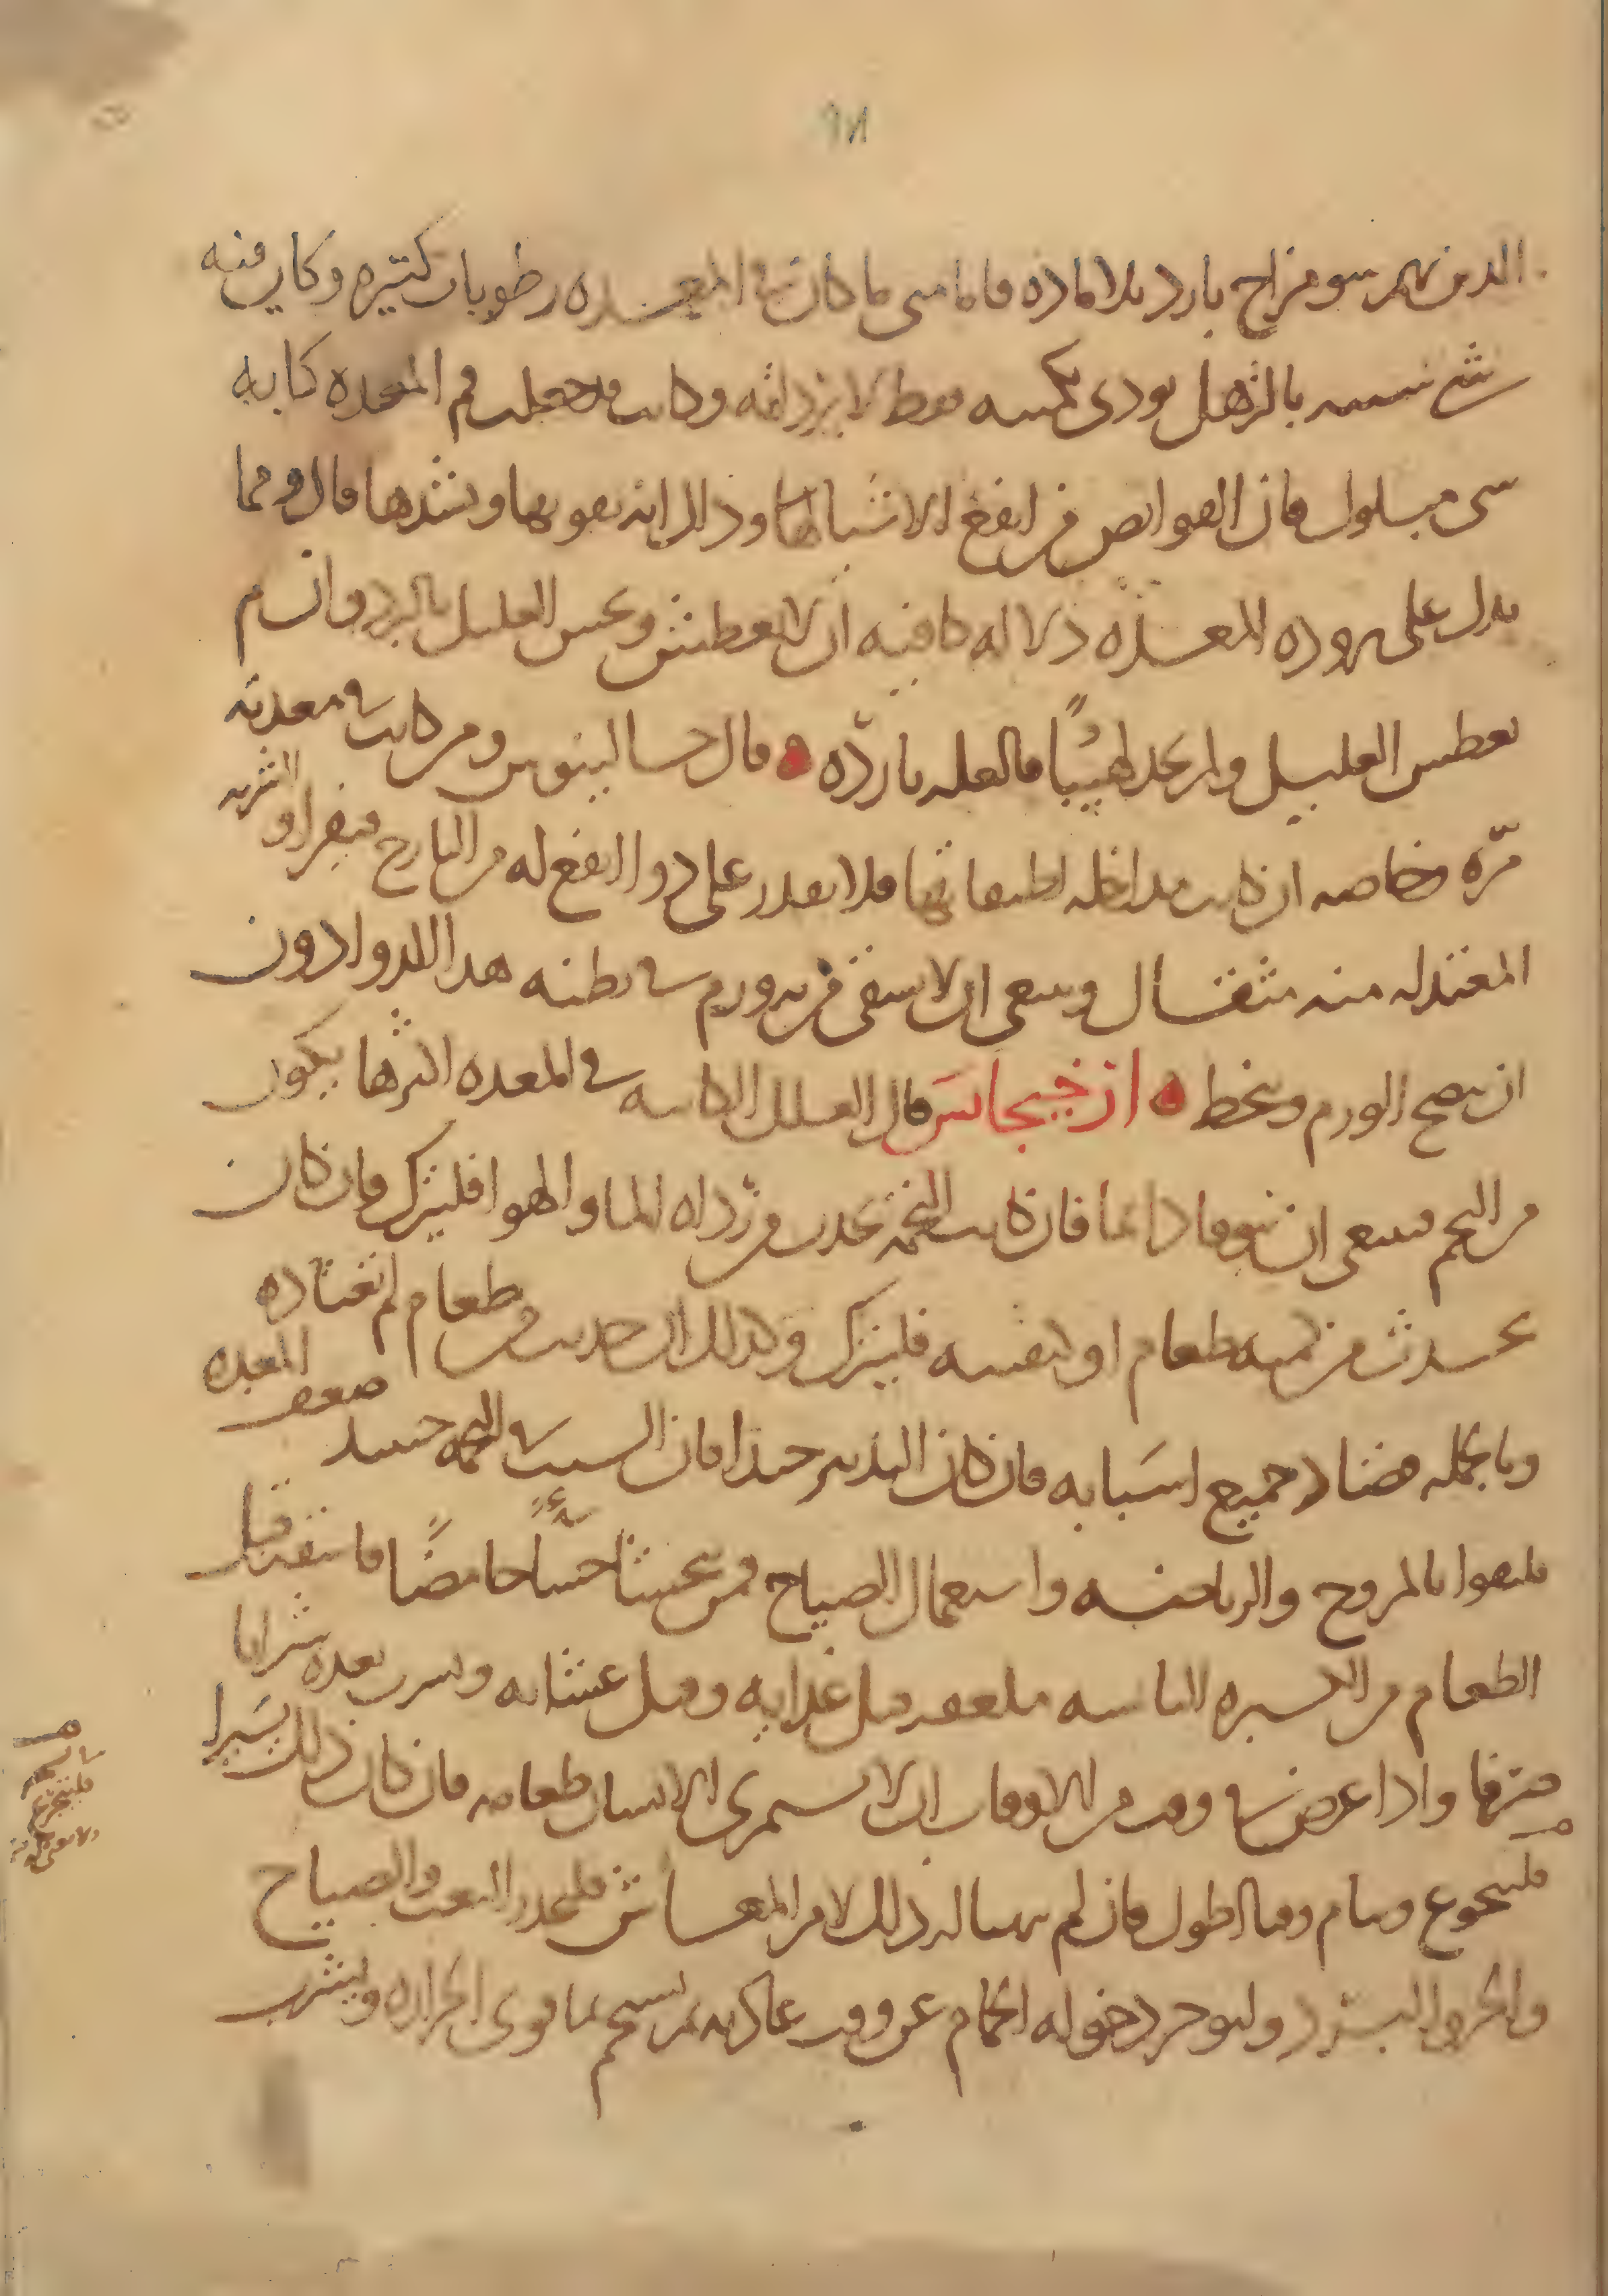 ٩٨
الذين بهم سو مزاج بارد بلا ماده فاما متى ما كان في المعده رطوبات كثيره وكان فيه
شي شبيه بالترهل يودى بكميته فقط لا برداته وكانت قد جعلت فم المعده كانه
شى مبلول فان القوابض من انفع الاشيا لها وذلك انه يقويها ويشدها قال ومما
يدل على بروده المعده دلاله كافيه ان لا يعطش ويحس العليل بالبرد وان لم
يعطش العليل ولم يجد لهيبًا فالعله بارده قال جالينوس ومن كانت في معدته
مرّه وخاصه ان كانت مداخله لطبقاتها فلا يقدر على دوا انفع له من ايارج فيقرا والشربه
المعتدله منه مثقال وينبغى ان لا يسقى من به ورم في بطنه هذا الدوا دون
ان ينضج الورم وينحط ارخيجانس قال العلل الكاينه في المعده اكثرها يكون
من التخم فينبغى ان يتوقا دايما فان كانت التخمه تحدث من رداه الما والهوا فليترك وان كان
يحدث من كميه طعام او كيفيه فليترك وكذلك ان حدث من طعام لم تعتاده
وبالجمله فضاد جميع اسبابه فان كان التدبير جيدا فان السبب في التخمه حينيذ ضعف المعده
فليقوا بالمروخ والرياضه واستعمال الصياح فمن يتجشا جشاءً حامضًا فاستف قبل
الطعام من الكسبره اليابسه ملعقه قبل غدايه وقبل عشايه ويشرب بعده شرابا
صرفا واذا عرض في وقت من الاوقات ان لا يستمرى الانسان طعامه فان كان ذلك يسيرا
فليتجوع وينام وقتا اطول فان لم يتهيا له ذلك لامر المعاش فليحذر التعب والصياح
والحر والبرد وليوخر دخوله الحمام عن وقت عادته ثم يستحم بما قوى الحراره ويشرب